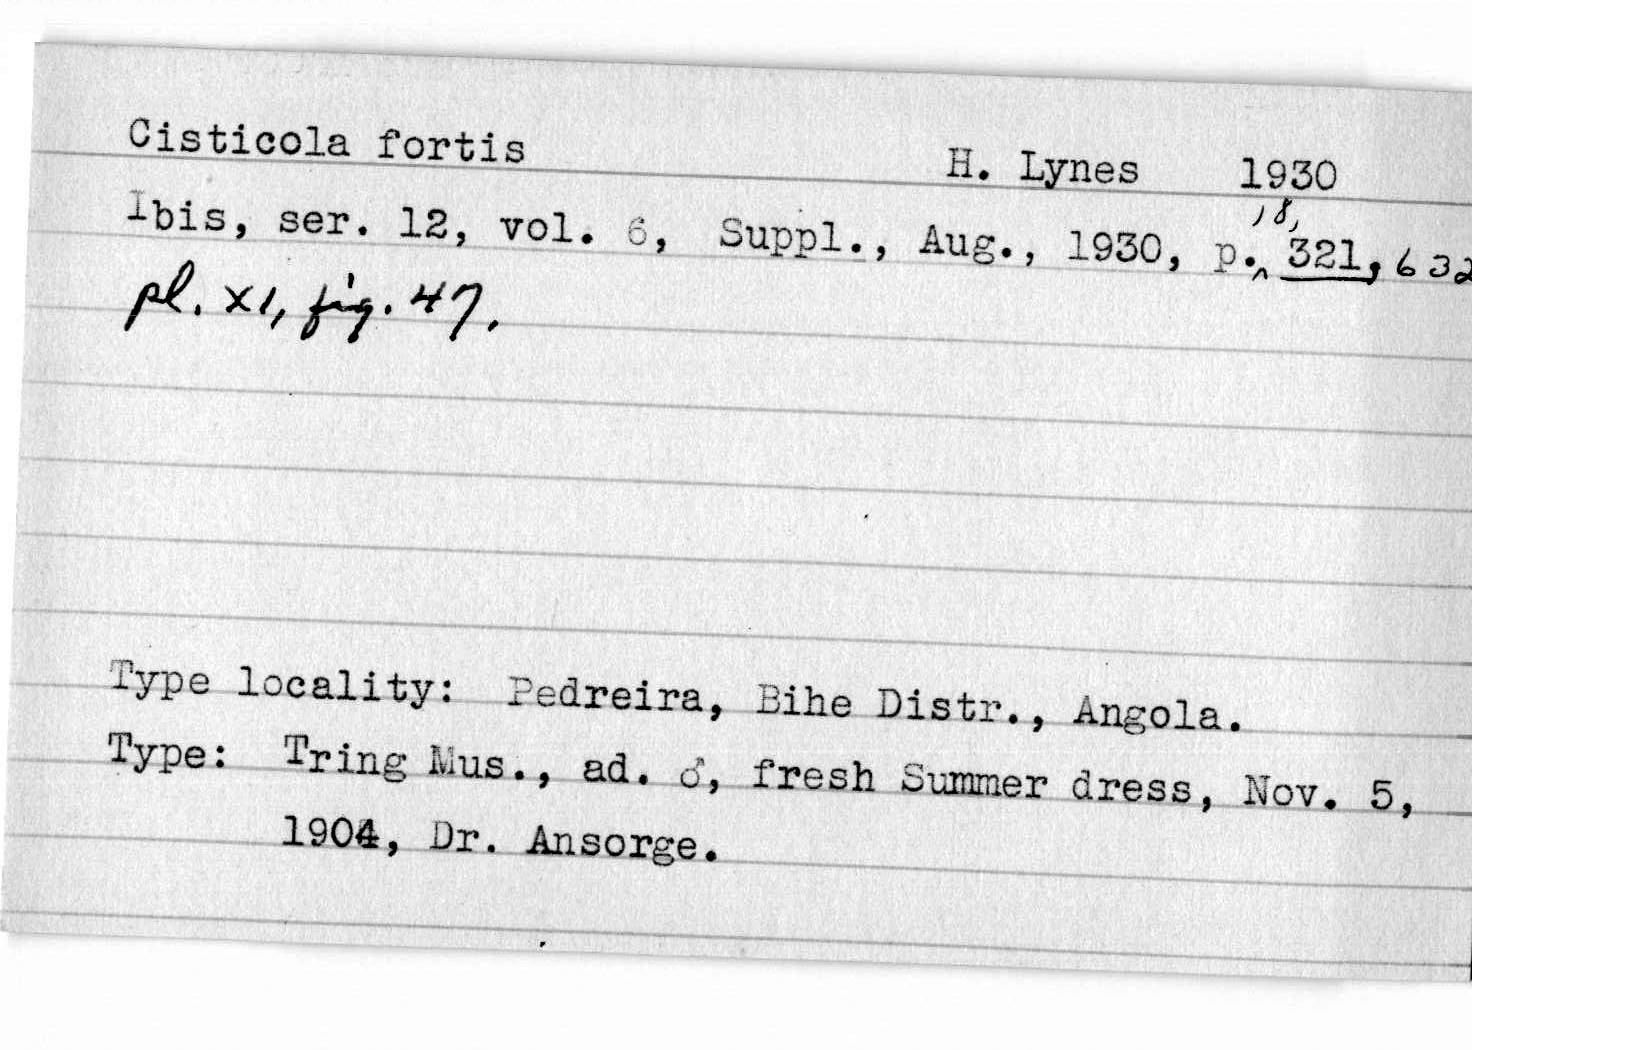 Cisticola fortis H. Lynes 1930
Ibis, ser. 12, vol. 6, Suppl., Aug., 1930, p. 18, 321, 632
pl. XI, fig. 47.
Type locality: Pedreira, Bihe Distr., Angola.
Type: Tring Mus., ad. ♂, fresh Summer dress, Nov. 5,
1904, Dr. Ansorge.